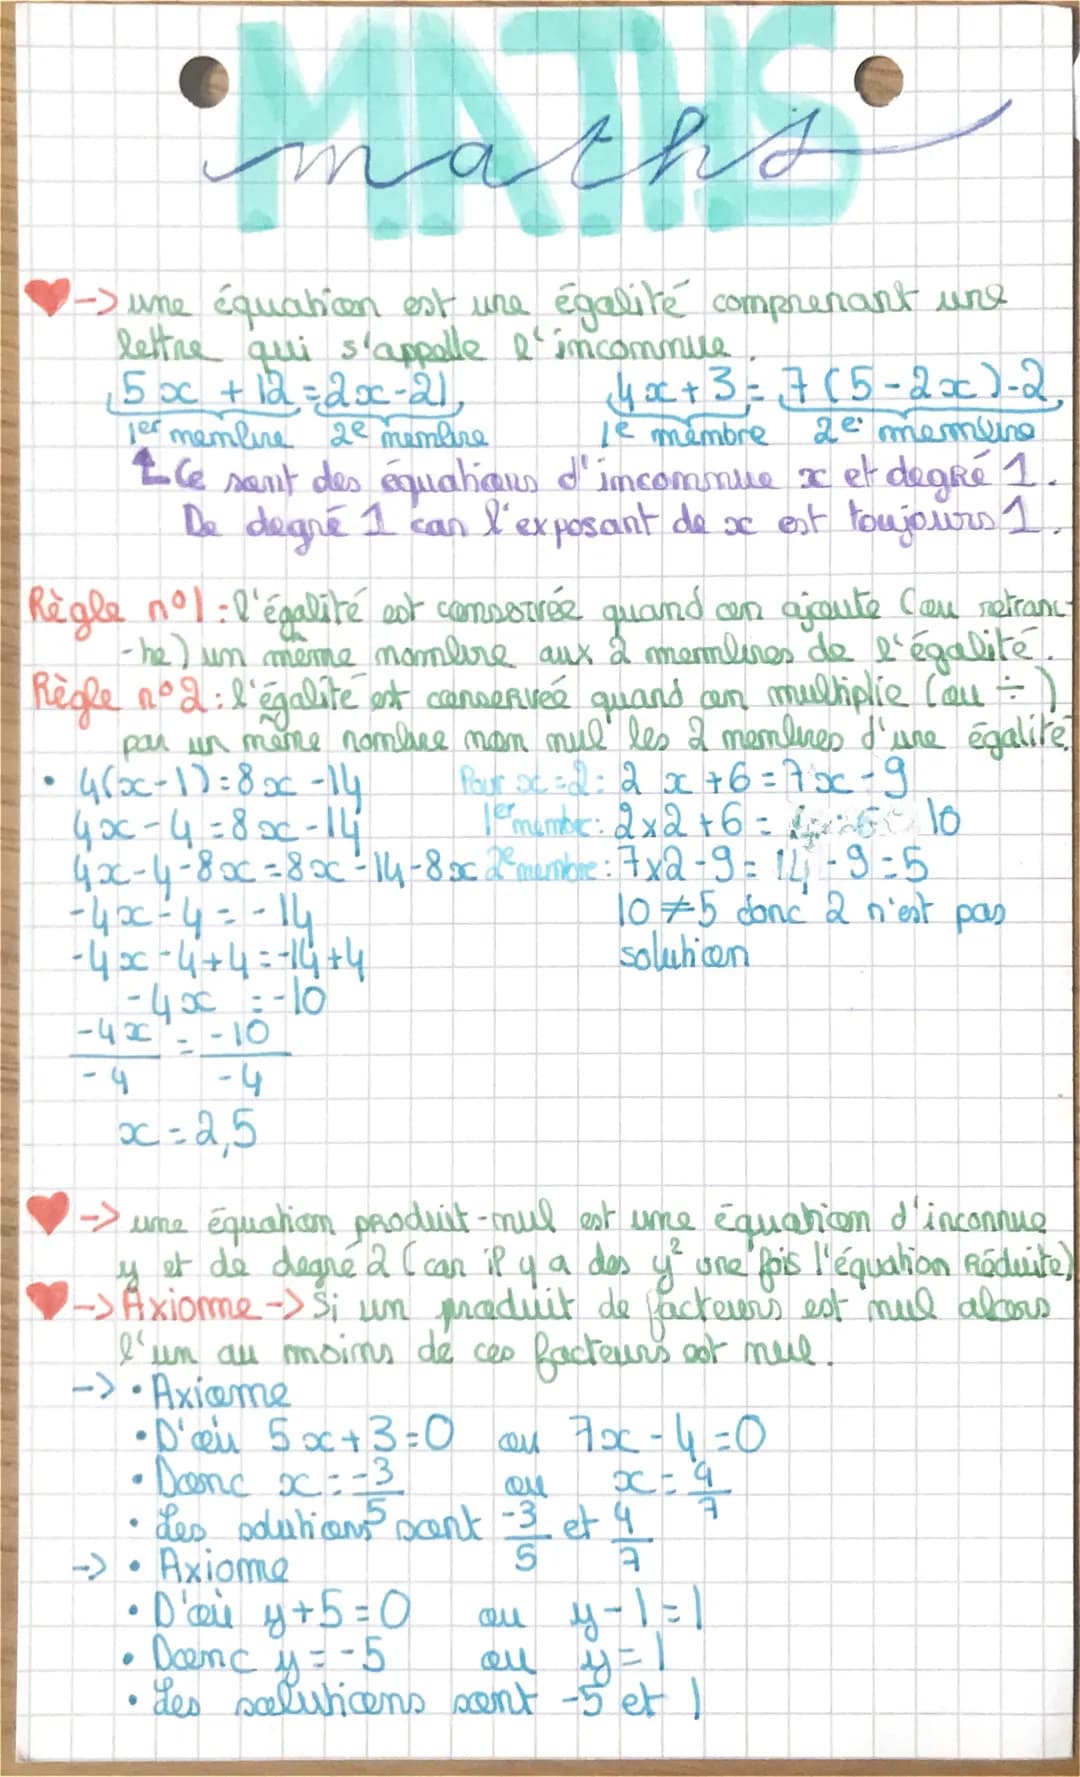 MATHS
maths
-> une équation est une égalité comprenant une
lettre qui s'appelle l'inconnue.
5x + 12 = 2x - 21, 4x + 3 = 7(5 - 2x) - 2,
1er membre 2e membre 1e membre 2e membre
Ce sont des équations d'inconnue x et degré 1.
De degré 1 car l'exposant de x est toujours 1.
Règle n°1 : l'égalité est conservée quand on ajoute (ou retranc-
-he) un même nombre aux 2 membres de l'égalité.
Règle n°2 : l'égalité est conservée quand on multiplie (ou ÷)
par un même nombre non nul les 2 membres d'une égalité.
• 4(x-1) = 8x - 14 Pour x = 2 : 2x + 6 = 7x - 9
4x - 4 = 8x - 14 1er membre : 2x2 + 6 = 10
4x - 4 - 8x = 8x - 14 - 8x 2e membre : 7x2 - 9 = 14 - 9 = 5
-4x - 4 = -14 10 ≠ 5 donc 2 n'est pas
-4x - 4 + 4 = -14 + 4 solution
-4x = -10
-4x/-4 = -10/-4
x = 2,5
-> une équation produit-nul est une équation d'inconnue
y et de degré 2 (car il y a des y² une fois l'équation Réduite)
-> Axiome -> Si un produit de facteurs est nul alors
l'un au moins de ces facteurs est nul.
-> • Axiome
• D'où 5x + 3 = 0 ou 7x - 4 = 0
• Donc x = -3/5 ou x = 4/7
• Les solutions sont -3/5 et 4/7
-> • Axiome
• D'où y + 5 = 0 ou y - 1 = 1
• Donc y = -5 ou y = 1
• Les solutions sont -5 et 1